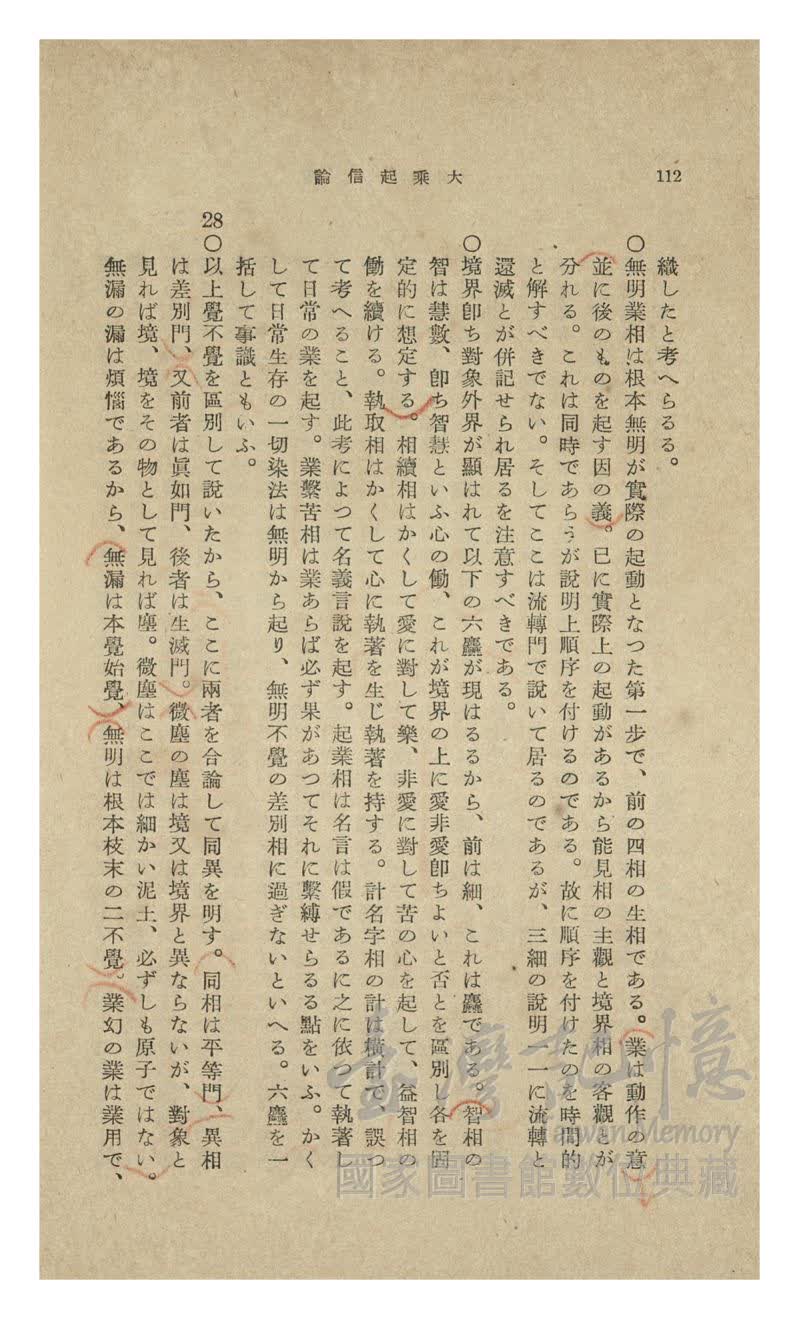 112
大乘起信論
織したと考へらるる。
○無明業相は根本無明が實際の起動となつた第一步で、前の四相の生相である。業は動作の意
並に後のものを起す因の義。已に實際上の起動があるから能見相の主觀と境界相の客觀とが
分れる。これは同時であらうが說明上順序を付けるのである。故に順序を付けたのを時間的
と解すべきでない。そしてここは流轉門で說いて居るのであるが、三細の說明一一に流轉と
還滅とが併記せられ居るを注意すべきである。
○境界卽ち對象外界が顯はれて以下の六麤が現はるるから、前は細、これは麤である。智相の
智は慧數、卽ち智慧といふ心の働、これが境界の上に愛非愛卽ちよいと否とを區別し各を固
定的に想定する。相續相はかくして愛に對して樂、非愛に對して苦の心を起して、益智相の
働を續ける。執取相はかくして心に執著を生じ執著を持する。計名字相の計は橫計で、誤つ
て考へること、此考によつて名義言說を起す。起業相は名言は假であるに之に依つて執著し
て日常の業を起す。業繫苦相は業あらば必ず果があつてそれに繫縛せらるる點をいふ。かく
して日常生存の一切染法は無明から起り、無明不覺の差別相に過ぎないといへる。六麤を一
括して事識ともいふ。
28○以上覺不覺を區別して說いたから、ここに兩者を合論して同異を明す。同相は平等門、異相
は差別門、又前者は眞如門、後者は生滅門。微塵の塵は境又は境界と異ならないが、對象と
見れば境、境をその物として見れば塵。微塵はここでは細かい泥土、必ずしも原子ではない。
無漏の漏は煩惱であるから、無漏は本覺始覺、無明は根本枝末の二不覺。業幻の業は業用で、
臺灣記憶
Taiwan Memory
國家圖書館數位典藏